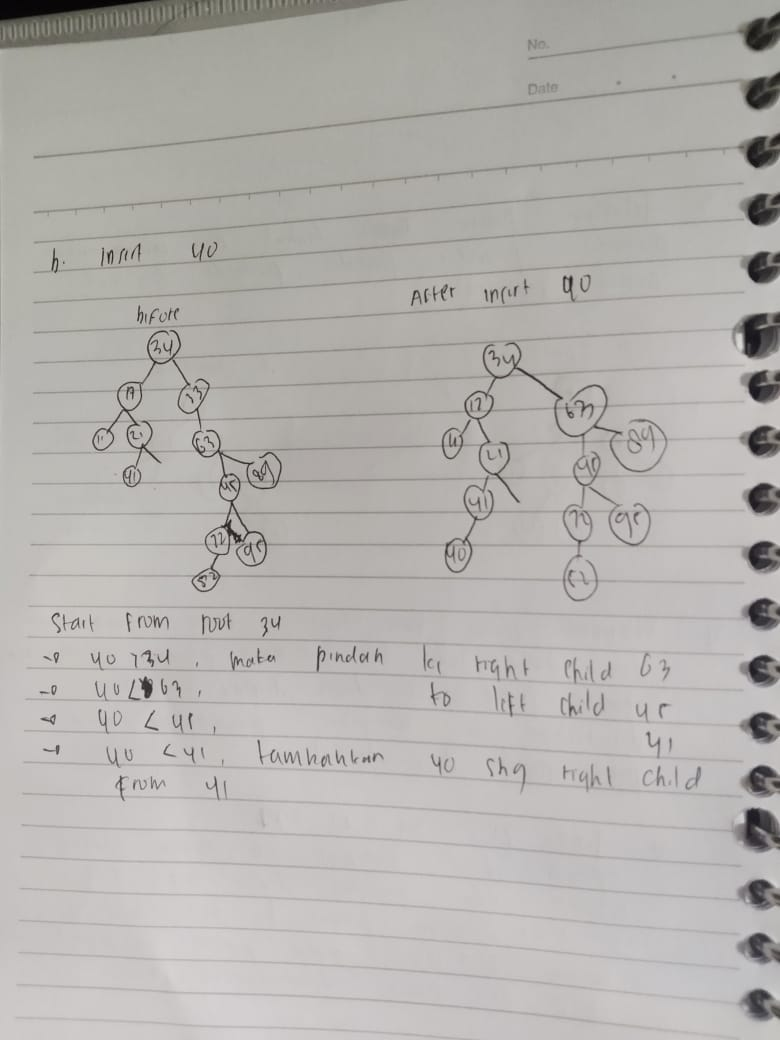 No.
Date
b. insert 40
before
After insert 40
34
17 33
11 21 63
41 45 89
72 95
52
34
17 63
11 21 89
41 72
40 52
Start from root 34
→ 40 > 34, maka pindah ke right child 63
→ 40 < 63, to left child 45
→ 40 < 45, 41
→ 40 < 41, tambahkan 40 sbg right child
from 41